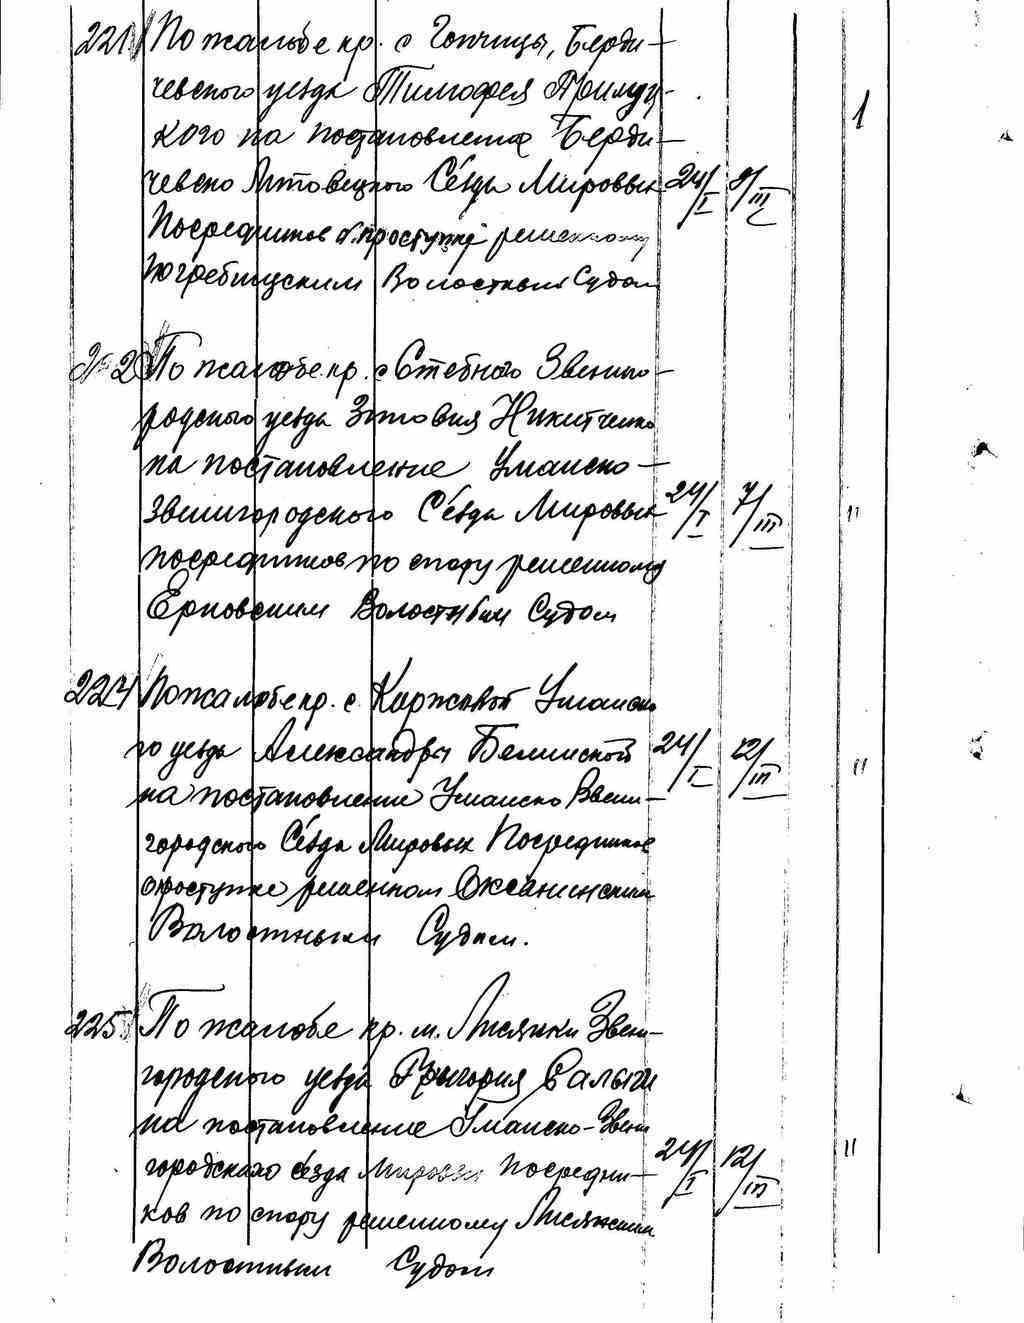 221 По жалобе кр. с Гопчицы, Берди-
чевского уезда Тимофея
кого на постановление Берди-
чевско Липовецкого Сезда Мировых 24/I 8/III
Посредников о проступке решенному
Погребищским Волостным Судом
1
По жалобе кр. с Стебного Звениго-
родского уезда Зиновия Никитченко
на постановление Уманско-
Звенигородского Сезда Мировых 24/I 7/III "
посредников по спору решенному
Волостным Судом
224 По жалобе кр. с. Коржовой Уманско
го уезда Александры Белинской 24/I 12/III "
на постановление Уманско Звени-
городского Сезда Мировых Посредников
о проступке решенном Оксанинским
Волостным Судом.
225 По жалобе кр. м. Лисянки Звени-
городского уезда Григория Салыги
на постановление Уманско-Звени
городского сезда Мировых Посредни- 24/I 12/III "
ков по спору решенному Лисянским
Волостным Судом